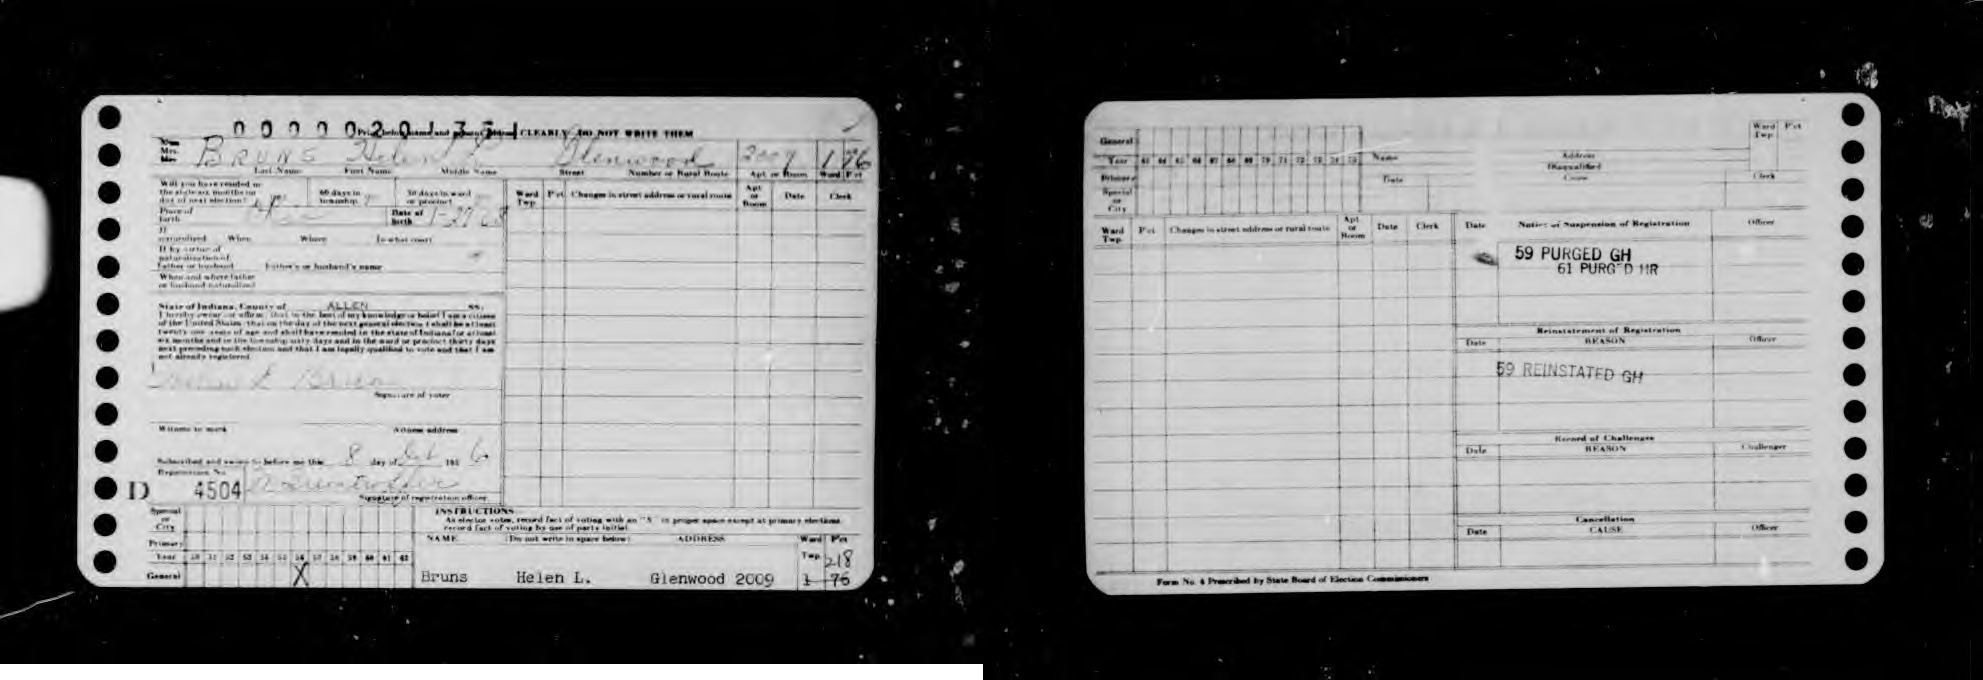 00000201351
Print below name and address CLEARLY DO NOT WRITE THEM
Mrs.
BRUNS Helen L Glenwood 2009 1 76
Last Name First Name Middle Name Street Number or Rural Route Apt. or Room Ward P'ct
Will you have resided in the state six months on day of next election?
60 days in township
30 days in ward or precinct
Place of birth
Date of birth 1-29
If naturalized When Where In what court
If by virtue of naturalization of Father or husband Father's or husband's name
When and where father or husband naturalized
Ward Twp. P'ct. Changes in street address or rural route Apt or Room Date Clerk
State of Indiana, County of ALLEN SS:
I hereby swear or affirm, that to the best of my knowledge or belief I am a citizen
of the United States, that on the day of the next general election I shall be at least
twenty one years of age and shall have resided in the state of Indiana for at least
six months and in the township sixty days and in the ward or precinct thirty days
next preceding such election and that I am legally qualified to vote and that I am
not already registered.
Helen L Bruns
Signature of voter
Witness to mark Witness address
Subscribed and sworn to before me this 8 day of 195 6
Registration No.
D 4504
Signature of registration officer
INSTRUCTIONS
As elector votes, record fact of voting with an "X" in proper space except at primary elections
record fact of voting by use of party initial.
Special or City
Primary
Year 50 51 52 53 54 55 56 57 58 59 60 61 62
General X
NAME (Do not write in space below) ADDRESS Ward P'ct
Twp. 218
Bruns Helen L. Glenwood 2009 1 76
General
Year 63 64 65 66 67 68 69 70 71 72 73 74 75
Primary
Special or City
Name Address
(Disqualified)
Date Cause Clerk
Ward Twp. P'ct
Ward Twp. P'ct. Changes in street address or rural route Apt or Room Date Clerk
Date Notice of Suspension of Registration Officer
59 PURGED GH
61 PURGED HR
Reinstatement of Registration
Date REASON Officer
59 REINSTATED GH
Record of Challenges
Date REASON Challenger
Cancellation
Date CAUSE Officer
Form No. 4 Prescribed by State Board of Election Commissioners